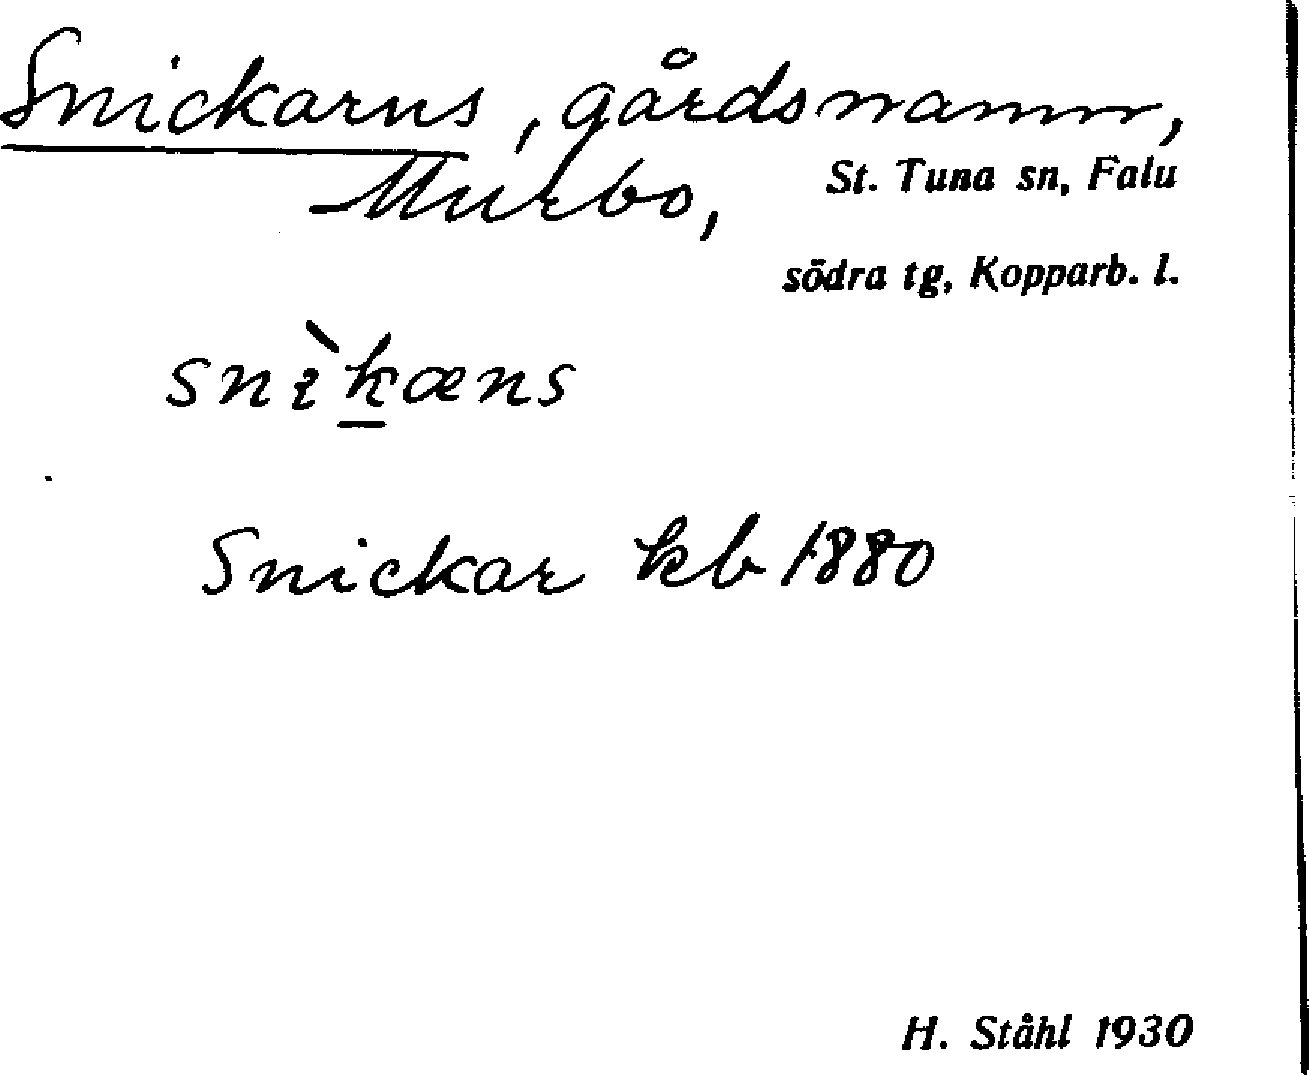 Snickarns, gårdsnamn,
Murbo, St. Tuna sn, Falu
södra tg, Kopparb. l.
snìk̲æns
Snickar kb 1880
H. Ståhl 1930